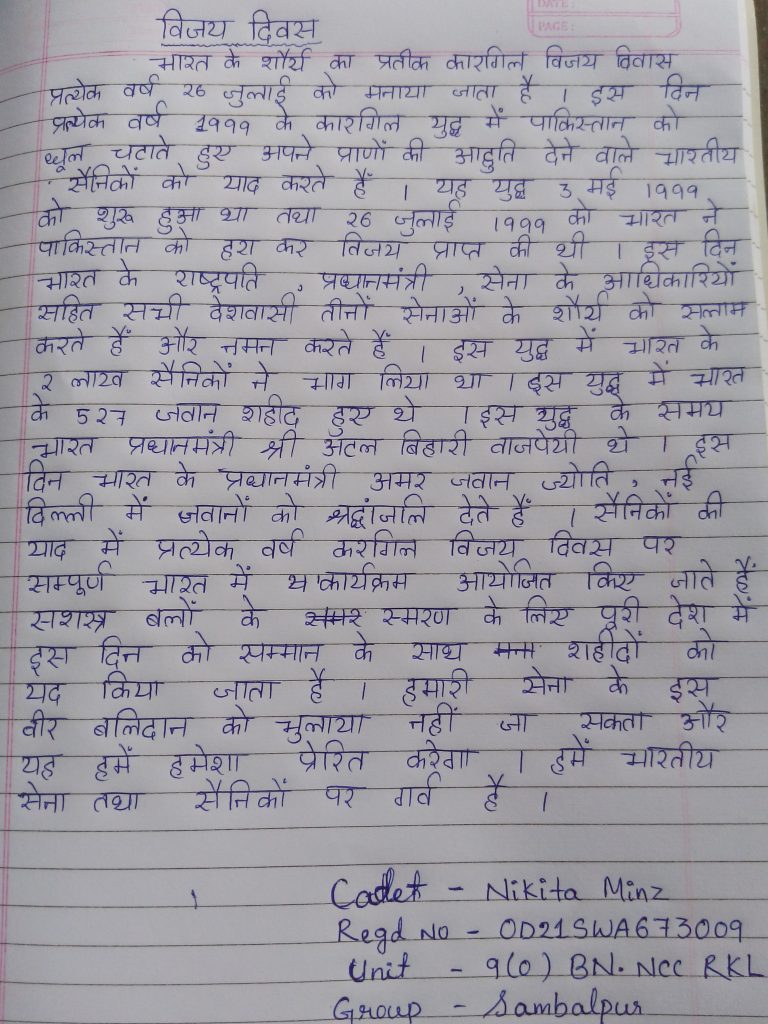 DATE:
PAGE:
विजय दिवस
भारत के शौर्य का प्रतीक कारगिल विजय विवास
प्रत्येक वर्ष 26 जुलाई को मनाया जाता है । इस दिन
प्रत्येक वर्ष 1999 के कारगिल युद्ध में पाकिस्तान को
धूल चटाते हुए अपने प्राणों की आहुति देने वाले भारतीय
सैनिकों को याद करते हैं । यह युद्ध 3 मई 1999
को शुरू हुआ था तथा 26 जुलाई 1999 को भारत ने
पाकिस्तान को हरा कर विजय प्राप्त की थी । इस दिन
भारत के राष्ट्रपति , प्रधानमंत्री , सेना के आधिकारियों
सहित सभी देशवासी तीनों सेनाओं के शौर्य को सलाम
करते हैं और नमन करते हैं । इस युद्ध में भारत के
2 लाख सैनिकों ने भाग लिया था । इस युद्ध में भारत
के 527 जवान शहीद हुए थे । इस युद्ध के समय
भारत प्रधानमंत्री श्री अटल बिहारी वाजपेयी थे । इस
दिन भारत के प्रधानमंत्री अमर जवान ज्योति , नई
दिल्ली में जवानों को श्रद्धांजलि देते हैं । सैनिकों की
याद में प्रत्येक वर्ष करगिल विजय दिवस पर
सम्पूर्ण भारत में कार्यक्रम आयोजित किए जाते हैं
सशस्त्र बलों के स्मरण के लिए पूरी देश में
इस दिन को सम्मान के साथ शहीदों को
यद किया जाता है । हमारी सेना के इस
वीर बलिदान को भुलाया नहीं जा सकता और
यह हमें हमेशा प्रेरित करेगा । हमें भारतीय
सेना तथा सैनिकों पर गर्व है ।
Cadet - Nikita Minz
Regd No - OD21SWA673009
Unit - 9(O) BN. NCC RKL
Group - Sambalpur